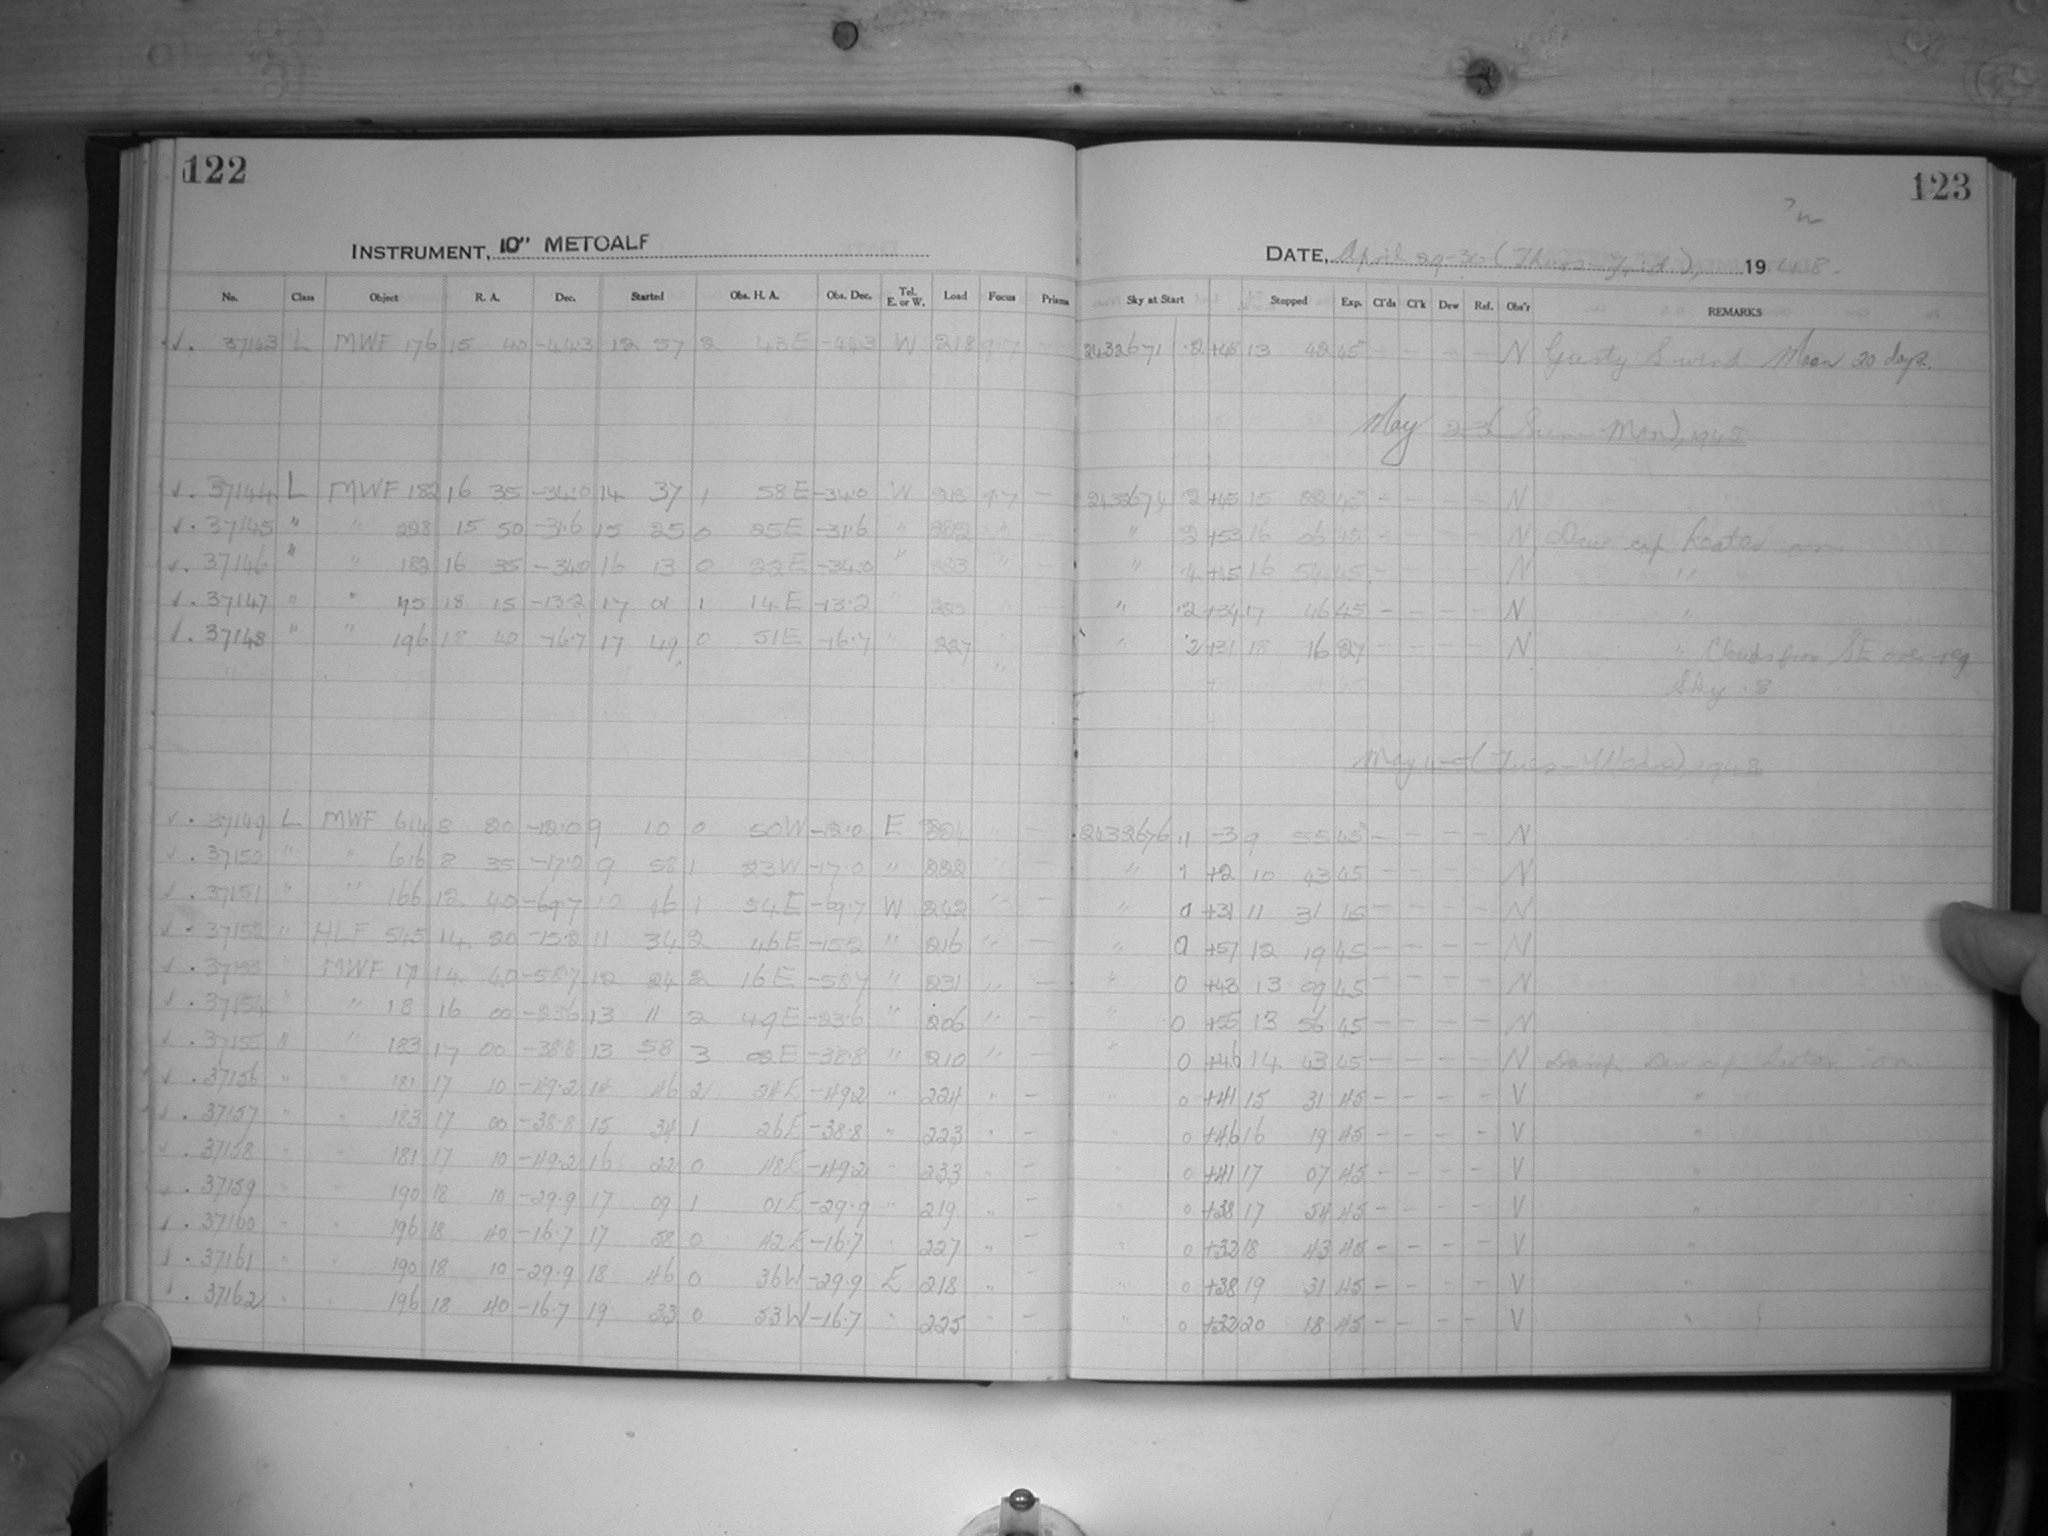 122
INSTRUMENT, 10" METCALF
No. Class Object R. A. Dec. Started Obs. H. A. Obs. Dec. Tel. E. or W. Load Focus Prisms
√. 37143 L MWF 176 15 40 -44.3 12 57 2 43E -44.3 W 218 9.7 —
√. 37144 L MWF 182 16 35 -34.0 14 37 1 58E -34.0 W 9.7 —
√. 37145 " " 223 15 50 -31.6 15 25 0 25E -31.6 "
√. 37146 " " 182 16 35 -34.0 16 13 0 22E -34.0 " 223 " —
√. 37147 " " 45 18 15 -13.2 17 01 1 14E -13.2 " " —
√. 37148 " " 196 18 40 -16.7 17 49 0 51E -16.7 " 227 "
√. 37149 L MWF 614 8 20 -12.0 9 10 0 50W -12.0 E 224 " —
√. 37150 " " 616 8 35 -17.0 9 58 1 23W -17.0 " 222 " —
√. 37151 " " 166 12 40 -69.7 10 46 1 54E -69.7 W 242 " —
√. 37152 " HLF 545 14 20 -15.2 11 34 2 46E -15.2 " 216 " —
√. 37153 " MWF 171 14 40 -58.7 12 24 2 16E -58.7 " 231 " —
√. 37154 " " 18 16 00 -23.6 13 11 2 49E -23.6 " 206 " —
√. 37155 " " 183 17 00 -38.8 13 58 3 02E -38.8 " 210 " —
√. 37156 " " 181 17 10 -49.2 14 46 2 24E -49.2 " 224 " —
√. 37157 " " 183 17 00 -38.8 15 34 1 26E -38.8 " 223 " —
√. 37158 " " 181 17 10 -49.2 16 22 0 48E -49.2 " 233 " —
√. 37159 " " 190 18 10 -29.9 17 09 1 01E -29.9 " 219 " —
√. 37160 " " 196 18 40 -16.7 17 58 0 42E -16.7 " 227 " —
√. 37161 " " 190 18 10 -29.9 18 46 0 36W -29.9 E 218 " —
√. 37162 " " 196 18 40 -16.7 19 33 0 53W -16.7 " 225 " —
123
DATE, April 29-30 (Thurs-Frid), 1948.
Sky at Start Stopped Exp. Cl'ds Cl'k Dew Ref. Obs'r REMARKS
2432671 .2 +45 13 42 45 — — — — N Gusty S wind Moon 20 days.
May 2-3 (Sun-Mon), 1948
2432674 .2 +45 15 22 45 — — — — N
" .2 +53 16 06 45 — — — — N Dew cap heater on
" .4 +45 16 54 45 — — — — N "
" .2 +34 17 46 45 — — — — N "
" .2 +31 18 16 27 — — — — N " Clouds from SE over reg
Sky .8
May 4-5 (Tues-Weds), 1948
2432676 .1 -3 9 55 45 — — — — N
" 1 +2 10 43 45 — — — — N
" 0 +31 11 31 45 — — — — N
" 0 +57 12 19 45 — — — — N
" 0 +43 13 09 45 — — — — N
" 0 +55 13 56 45 — — — — N
" 0 +46 14 43 45 — — — — N Damp Dew cap heater on
" 0 +41 15 31 45 — — — — V "
" 0 +46 16 19 45 — — — — V "
" 0 +41 17 07 45 — — — — V "
" 0 +38 17 54 45 — — — — V "
" 0 +32 18 43 45 — — — — V "
" 0 +38 19 31 45 — — — — V "
" 0 +32 20 18 45 — — — — V "